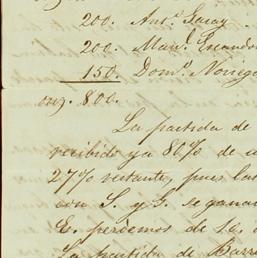 200. Anto. Garay
200. Manl. Escandon
150. Domo. Noriega
onz. 800.
La partida de
recibido ya 80% de
27% restante, pues las
con S. y G. se gana
E. perdemos de
La partida de Barr